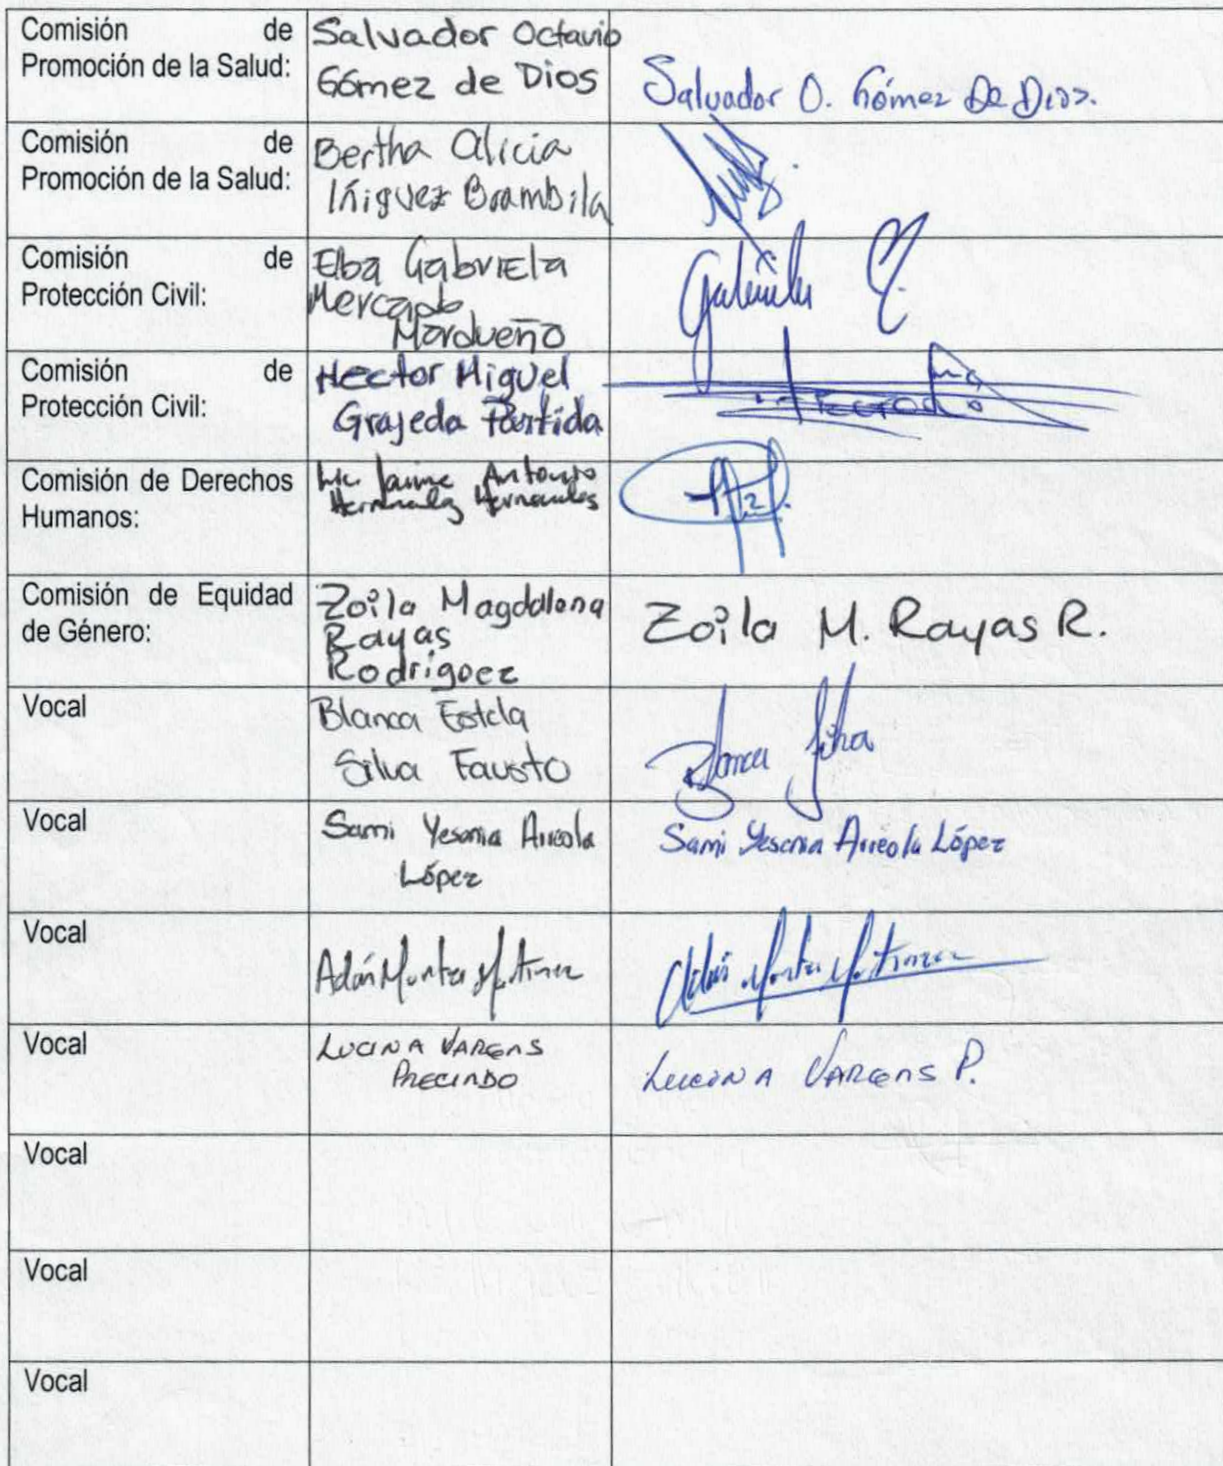 Comisión de
Promoción de la Salud:
Salvador Octavio
Gómez de Dios
Salvador O. Gómez De Dios.
Comisión de
Promoción de la Salud:
Bertha Alicia
Iñiguez Brambila
Comisión de
Protección Civil:
Elba Gabriela
Mercado
Mardueño
Gabriela
Comisión de
Protección Civil:
Hector Miguel
Grajeda Partida
Comisión de Derechos
Humanos:
Lic. Jaime Antonio
Hernandez Hernandez
Comisión de Equidad
de Género:
Zoila Magdalena
Rayas
Rodriguez
Zoila M. Rayas R.
Vocal
Blanca Estela
Silva Fausto
Blanca Silva
Vocal
Sami Yesenia Arreola
López
Sami Yesenia Arreola López
Vocal
Adán
Vocal
LUCINA VARGAS
PRECIADO
LUCINA VARGAS P.
Vocal
Vocal
Vocal